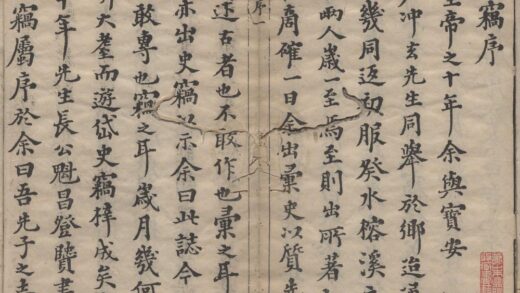 竊序
皇帝之十年余與寶安
冲玄先生同舉於鄉迨
幾同返初服癸水榕溪
兩人歲一至焉至則出所著
周確一日余出彙史以質
序一
述古者也不敢作也彙之耳
亦出史竊以示余曰此誌今
敢專也竊之耳歲月幾何
大耋而遊岱史竊梓成矣
年先生長公魁昌登賢書
竊屬序於余曰吾先子之